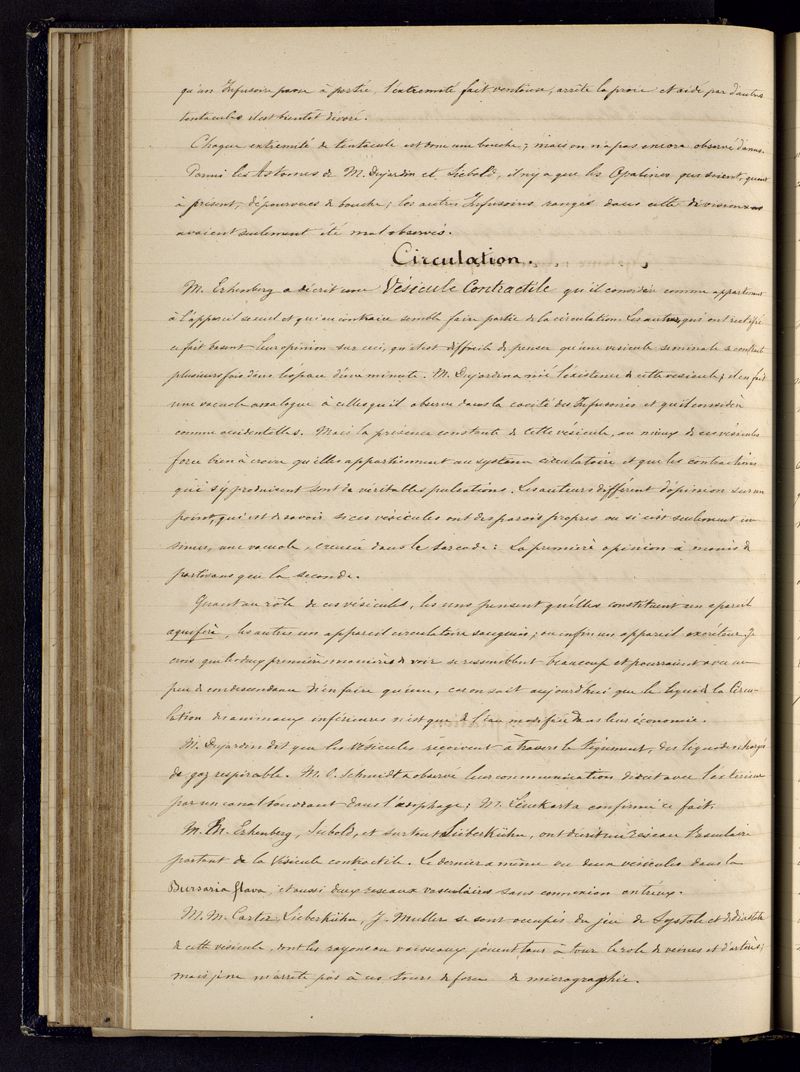 qu'un Infusoire passe à portée, l'extremité fait ventouse, arrête la proie et aidé par d'autres
tentacules il est bientôt dévoré.
Chaque extremité de tentacule est donc une bouche; mais on n'a pas encore observé d'anus.
Parmi les Astomes de M. Dujardin et Siebold, il n'y a que les Opalines qui soient, quant
à présent, dépourvues de bouche; les autres Infusoires rangés dans cette division
avaient seulement été mal observés.
Circulation.
M. Erhenberg a décrit une Vésicule Contractile qu'il considère comme appartenant
à l'appareil sexuel et qui au contraire semble faire partie de la circulation. Les auteurs, qui ont rectifié
ce fait basent leur opinion sur ceci, qu'il est difficile de penser qu'une vesicule seminale se contracte
plusieurs fois dans l'espace d'une minute. M. Dujardin a nié l'éxistence de cette vesicule; il en fait
une vacuole analogue à celles qu'il observe dans la cavité des Infusoires et qu'il considère
comme accidentelles. Mais la présence constante de cette vésicule, ou mieux de ces vésicules
force bien à croire qu'elles appartiennent au système circulatoire et que les contractions
qui s'y produisent sont de véritables pulsations. Les auteurs diffèrent d'opinion sur un
point, qui est de savoir si ces vésicules ont des parois propres ou si c'est seulement un
sinus, une vacuole, creusée dans le sarcode: la première opinion a moins de
partisans que la seconde.
Quant au rôle de ces vésicules, les uns pensent qu'elles constituent un apareil
aquifère, les autres un appareil circulatoire sanguin; ou enfin un appareil excréteur. Je
crois que les deux premières manières de voir se ressemblent beaucoup et pourraient avec un
peu de condescendance n'en faire qu'une, car on sait aujourd'hui que le liquide de la Circu-
lation des animaux inférieures n'est que de l'eau modifiée dans leur économie.
M. Dujardin dit que les vésicules réçoivent à travers le tégument, des liquides chargés
de gaz respirable. M. O. Schmidt a observé leur communication direct avec l'éxterieur
par un canal s'ouvrant dans l'œsophage; M. Leuckart a confirmé ce fait.
M. Erhenberg, Siebold, et surtout Lieberkühn, ont décrit un réseau Vasculaire
partant de la Vésicule contractile. Le dernier a même vu deux vesicules dans la
Bursaria flava, et aussi deux reseaux vasculaires sans connexion entr'eux.
M. M. Carter, Lieberkühn, J. Muller se sont occupés du jeu de Systole et de diastole
de cette vesicule, dont les rayons ou vaisseaux jouent tour à tour le role de veines et d'artères;
mais je ne m'arrete pas à ces tours de force de micrographie.